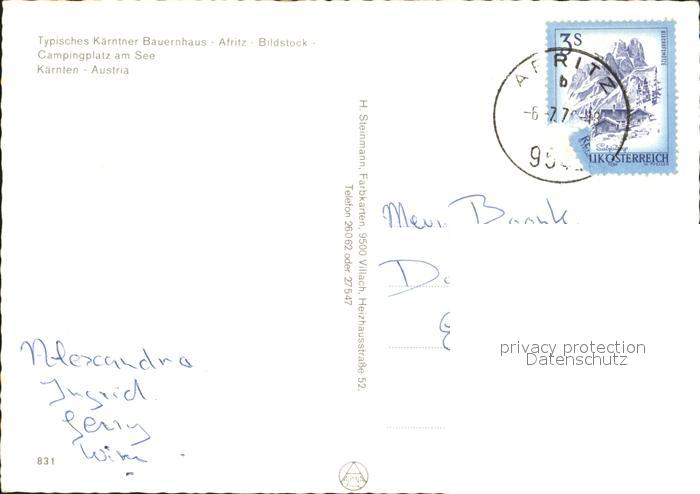 Typisches Kärntner Bauernhaus - Afritz - Bildstock -
Campingplatz am See
Kärnten - Austria
H. Steinmann, Farbkarten, 9500 Villach, Heizhausstraße 52.
Telefon 26062 oder 27547
3S
AFRITZ
b
-6.-7.7
95
ÖSTERREICH
privacy protection
Datenschutz
Alexandra
Ingrid
Gerry
Wim
831